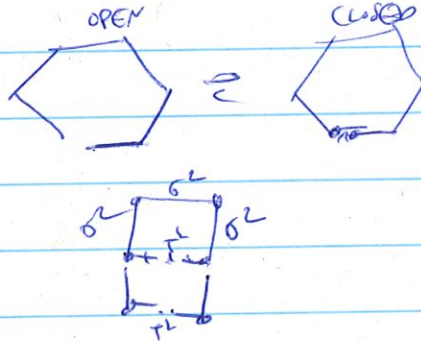 OPEN CLOSED
σ²
σ² σ²
τ²
τ²